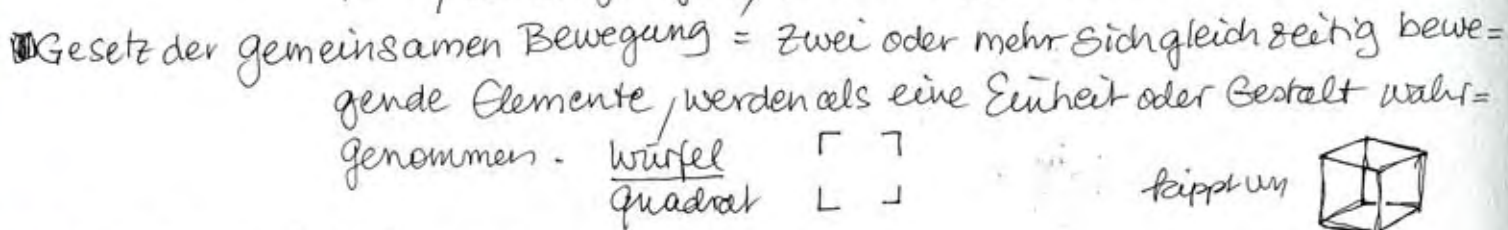 Gesetz der gemeinsamen Bewegung = zwei oder mehr sich gleichzeitig bewe=
gende Elemente, werden als eine Einheit oder Gestalt wahr=
genommen. Würfel
Quadrat
kippt um